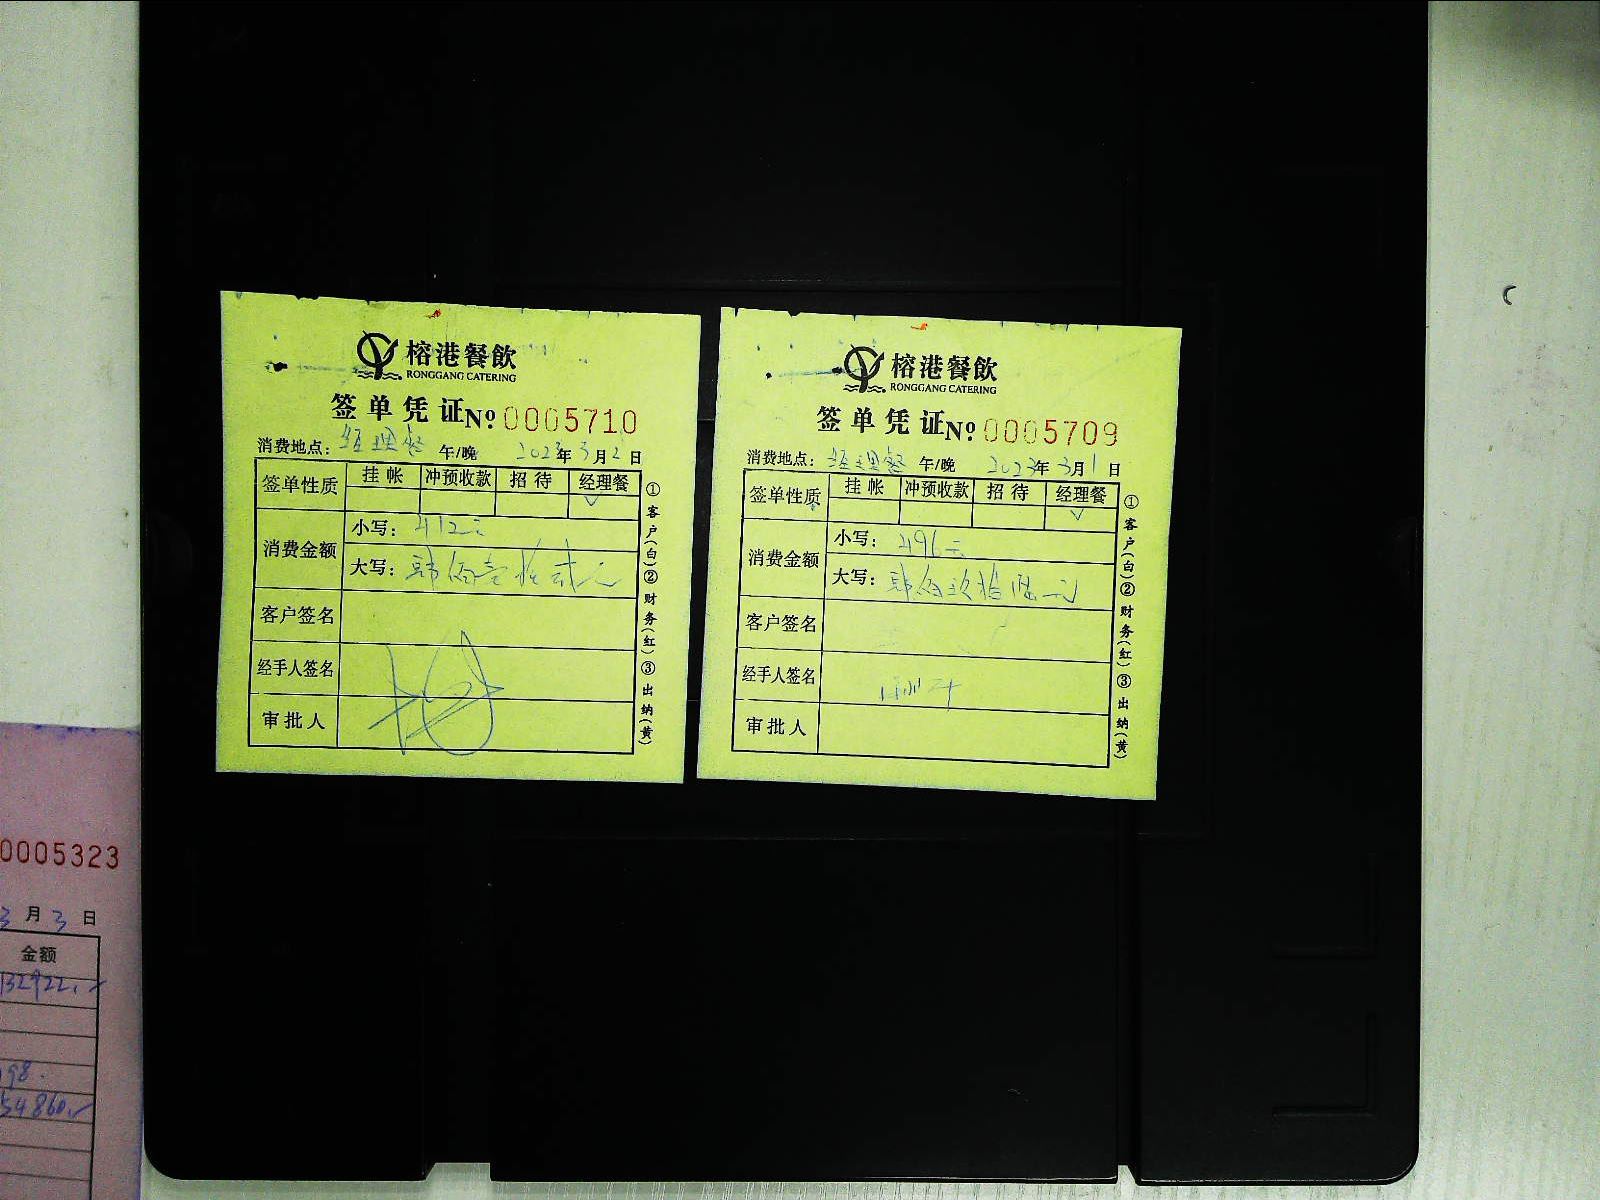 榕港餐飲
RONGGANG CATERING
签单凭证 No 0005710
消费地点：经理餐 午/晚 2023年3月2日
签单性质 挂帐 冲预收款 招待 经理餐
✓
消费金额 小写：412元
大写：肆佰壹拾贰元
客户签名
经手人签名
审批人
①客户(白)②财务(红)③出纳(黄)
榕港餐飲
RONGGANG CATERING
签单凭证 No 0005709
消费地点：经理餐 午/晚 2023年3月1日
签单性质 挂帐 冲预收款 招待 经理餐
✓
消费金额 小写：496元
大写：肆佰玖拾陆元
客户签名
经手人签名
审批人
①客户(白)②财务(红)③出纳(黄)
0005323
3月3日
金额
132922.
98.
54860.